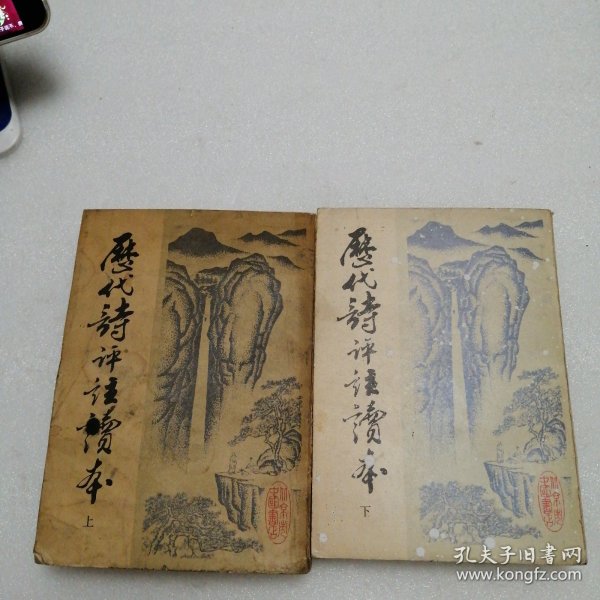 歷代詩评註讀本
上
歷代詩评註讀本
下
孔夫子旧书网
www.kongfz.com